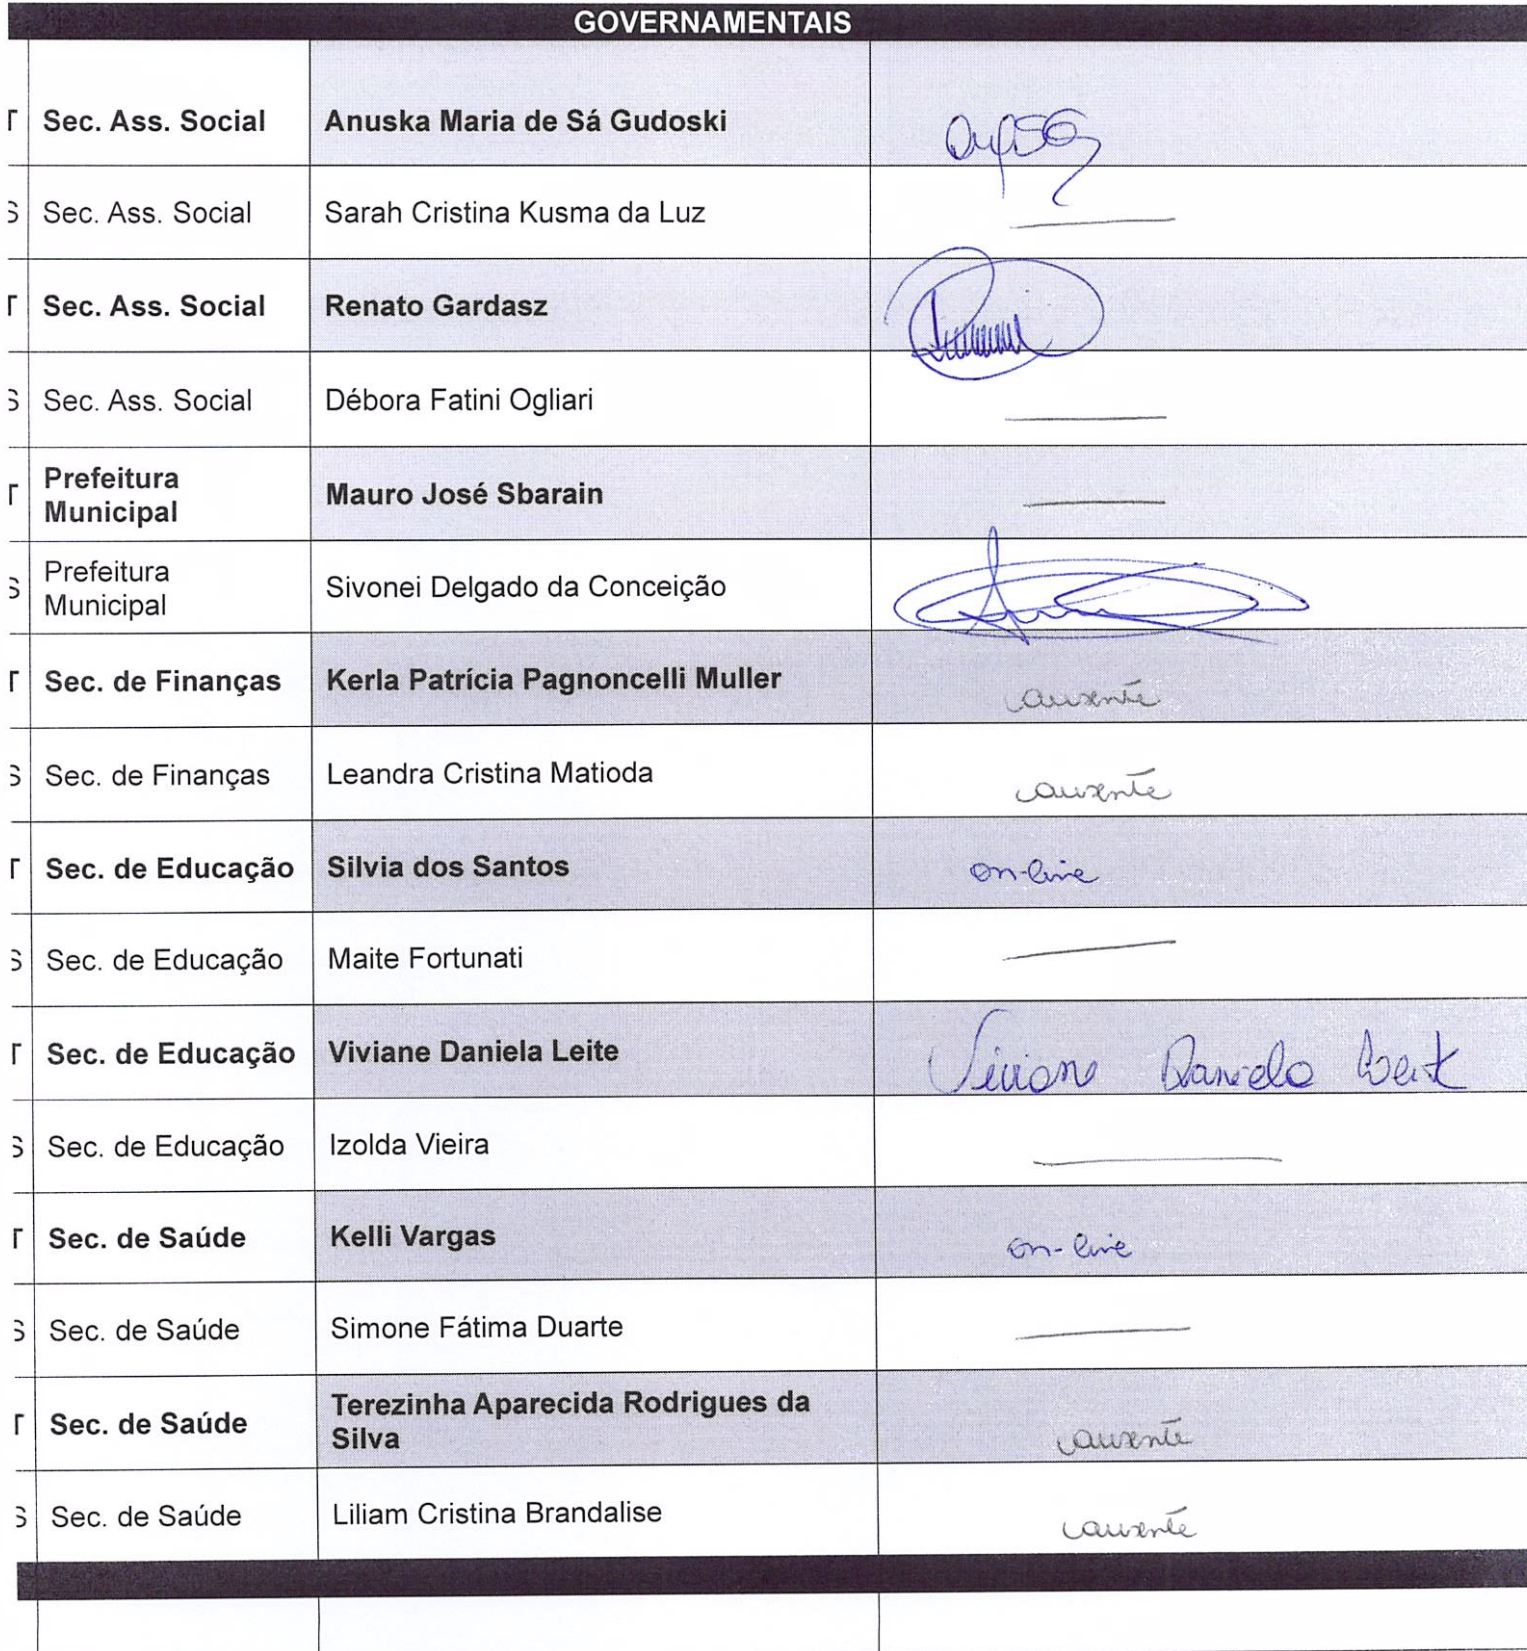 GOVERNAMENTAIS
T Sec. Ass. Social Anuska Maria de Sá Gudoski
S Sec. Ass. Social Sarah Cristina Kusma da Luz
T Sec. Ass. Social Renato Gardasz
S Sec. Ass. Social Débora Fatini Ogliari
Prefeitura
T Municipal Mauro José Sbarain
Prefeitura
S Municipal Sivonei Delgado da Conceição
T Sec. de Finanças Kerla Patrícia Pagnoncelli Muller ausente
S Sec. de Finanças Leandra Cristina Matioda ausente
T Sec. de Educação Silvia dos Santos on-line
S Sec. de Educação Maite Fortunati
T Sec. de Educação Viviane Daniela Leite Viviane Daniela Leite
S Sec. de Educação Izolda Vieira
T Sec. de Saúde Kelli Vargas on-line
S Sec. de Saúde Simone Fátima Duarte
T Sec. de Saúde Terezinha Aparecida Rodrigues da
Silva ausente
S Sec. de Saúde Liliam Cristina Brandalise ausente